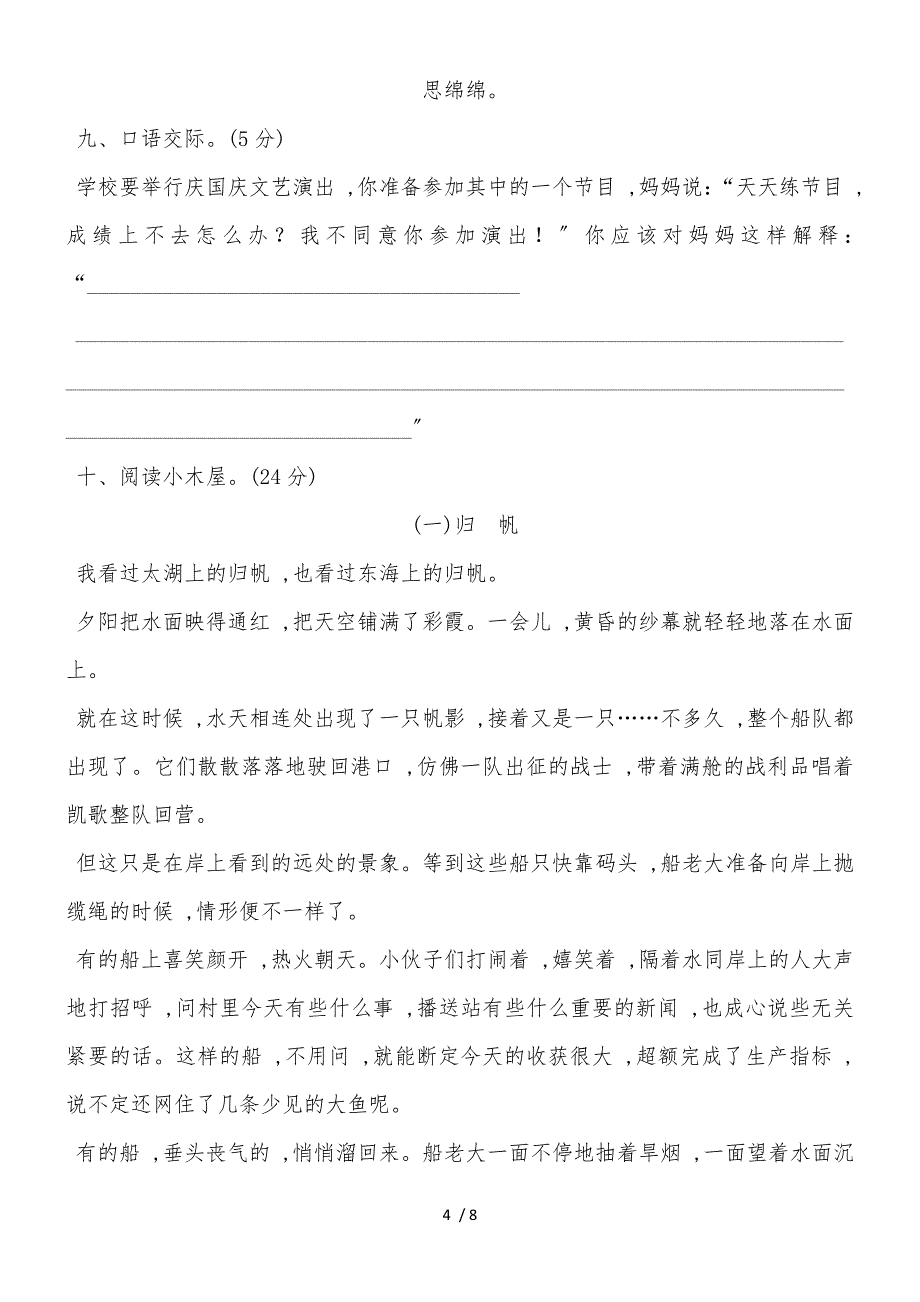 思绵绵。
九、口语交际。(5分)
学校要举行庆国庆文艺演出 ,你准备参加其中的一个节目 ,妈妈说：“天天练节目 ,
成绩上不去怎么办？我不同意你参加演出！〞你应该对妈妈这样解释：
“________________________________________
______________________________________________________________________
______________________________________________________________________
________________________________〞
十、阅读小木屋。(24分)
(一)归　帆
我看过太湖上的归帆 ,也看过东海上的归帆。
夕阳把水面映得通红 ,把天空铺满了彩霞。一会儿 ,黄昏的纱幕就轻轻地落在水面
上。
就在这时候 ,水天相连处出现了一只帆影 ,接着又是一只……不多久 ,整个船队都
出现了。它们散散落落地驶回港口 ,仿佛一队出征的战士 ,带着满舱的战利品唱着
凯歌整队回营。
但这只是在岸上看到的远处的景象。等到这些船只快靠码头 ,船老大准备向岸上抛
缆绳的时候 ,情形便不一样了。
有的船上喜笑颜开 ,热火朝天。小伙子们打闹着 ,嬉笑着 ,隔着水同岸上的人大声
地打招呼 ,问村里今天有些什么事 ,播送站有些什么重要的新闻 ,也成心说些无关
紧要的话。这样的船 ,不用问 ,就能断定今天的收获很大 ,超额完成了生产指标 ,
说不定还网住了几条少见的大鱼呢。
有的船 ,垂头丧气的 ,悄悄溜回来。船老大一面不停地抽着旱烟 ,一面望着水面沉
4 / 8